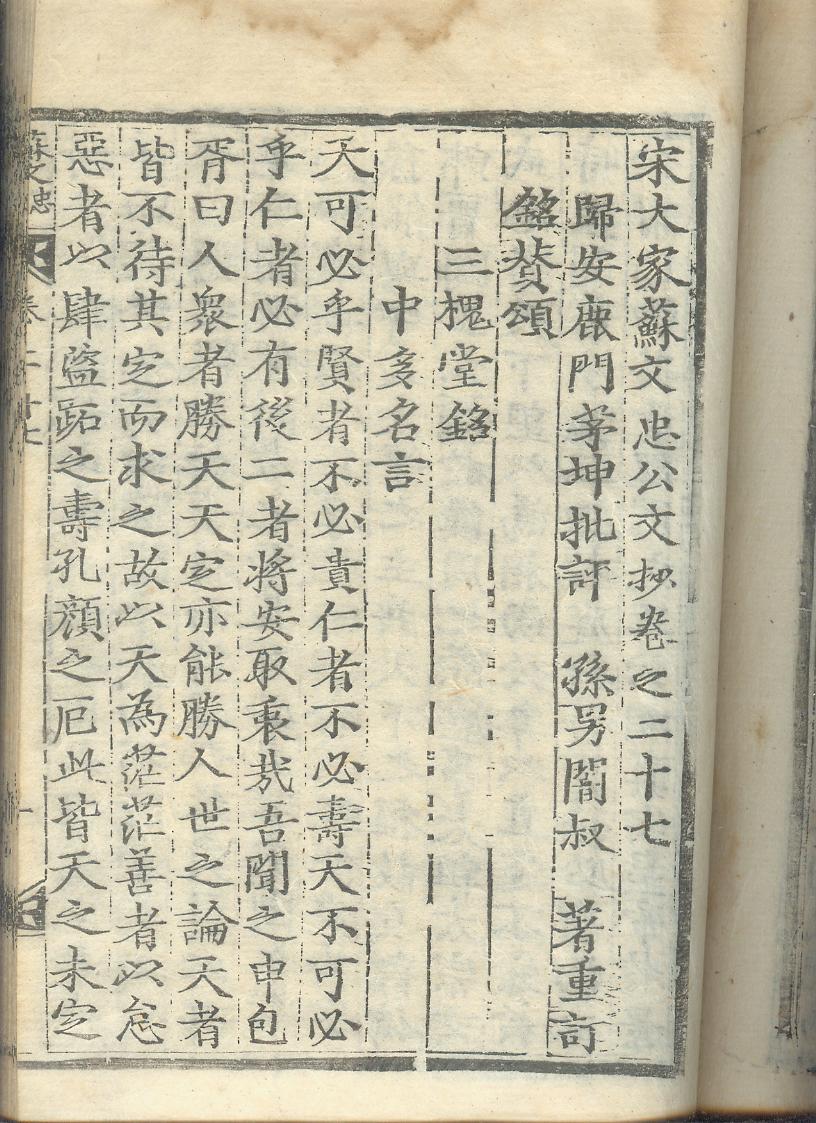 宋大家蘇文忠公文抄卷之二十七
歸安鹿門茅坤批評 孫男闇叔 著重訂
銘贊頌
三槐堂銘
中多名言
天可必乎賢者不必貴仁者不必壽天不可必
乎仁者必有後二者將安取衷㢤吾聞之申包
胥曰人衆者勝天天定亦能勝人世之論天者
皆不待其定而求之故以天為茫茫善者以怠
惡者以肆盜跖之壽孔顔之厄此皆天之未定
卷二十七